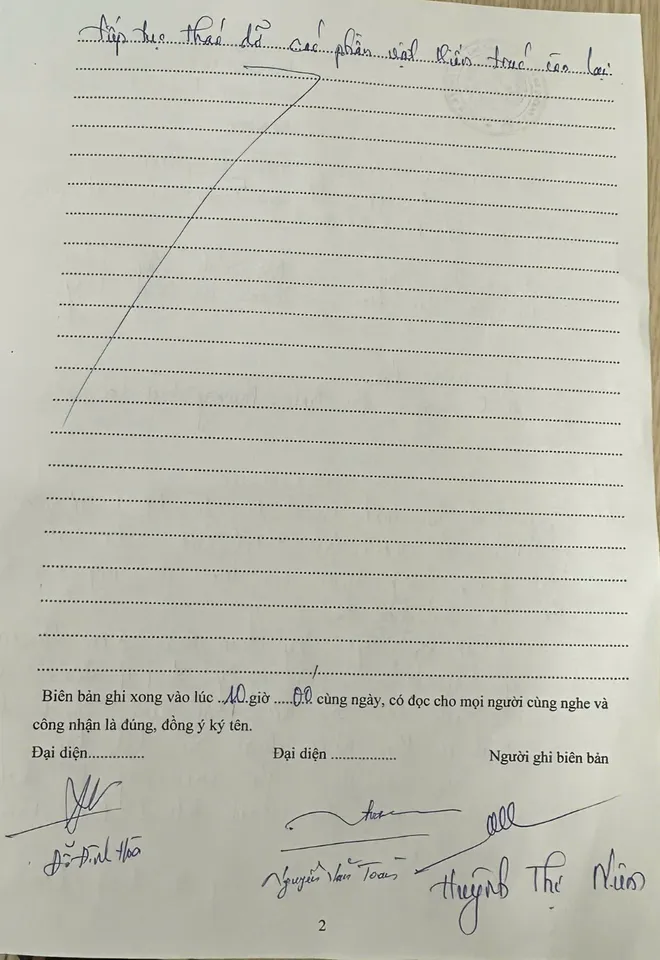 tiếp tục tháo dỡ các phần vật kiến trúc còn lại.
Biên bản ghi xong vào lúc ..10.giờ .....00. cùng ngày, có đọc cho mọi người cùng nghe và
công nhận là đúng, đồng ý ký tên.
Đại diện.............. Đại diện ................ Người ghi biên bản
Đỗ Đình Hoà Nguyễn Văn Toàn Huỳnh Thị
2